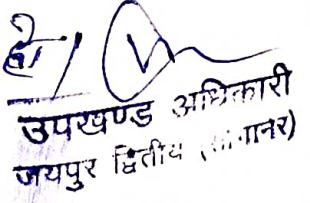 है/
उपखण्ड अधिकारी
जयपुर द्वितीय (सांगानेर)